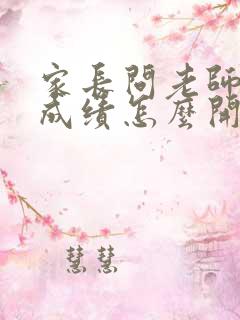 家长問老師
成绩怎麼開
慧慧